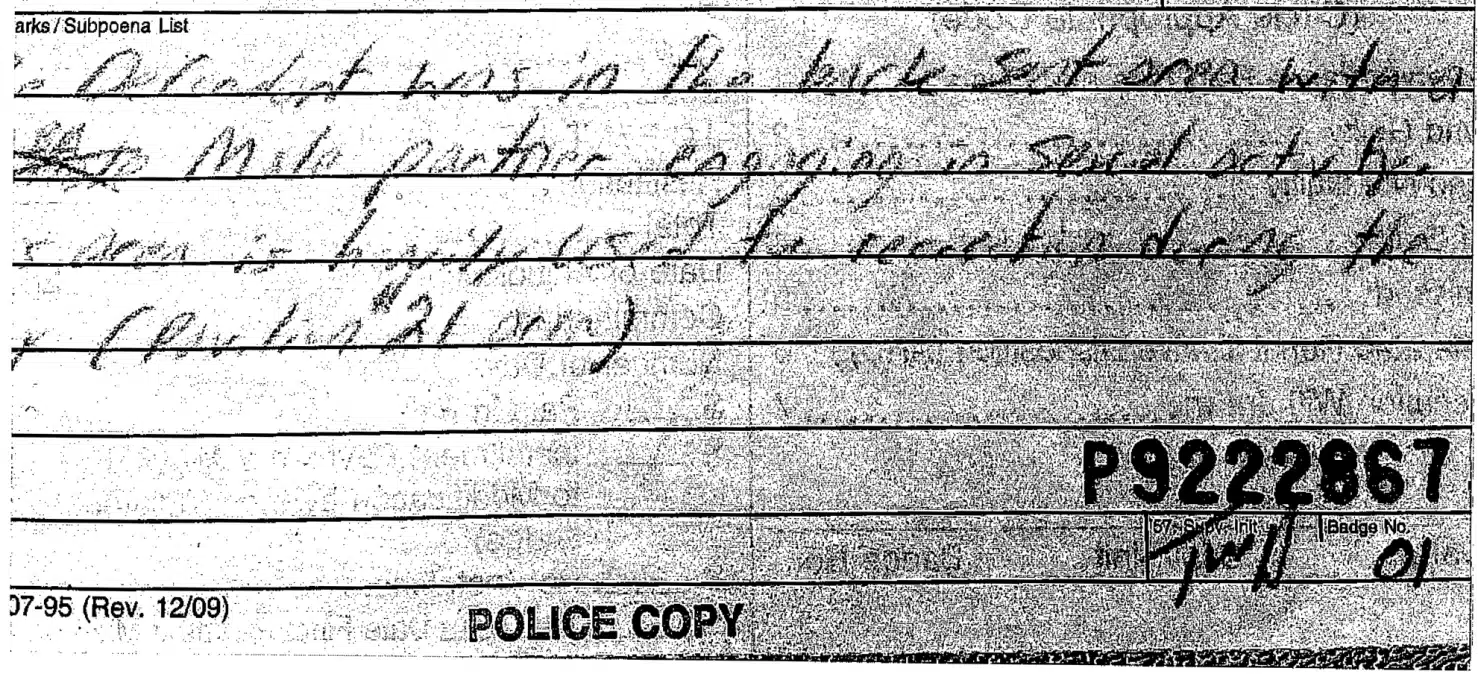 arks / Subpoena List
Defendant was in the back seat area with a
Male partner engaging in sexual activity.
s area is used for recreation during the
( Pavilion #21 area)
P9222867
57. Supv. Init. Badge No.
01
07-95 (Rev. 12/09)
POLICE COPY